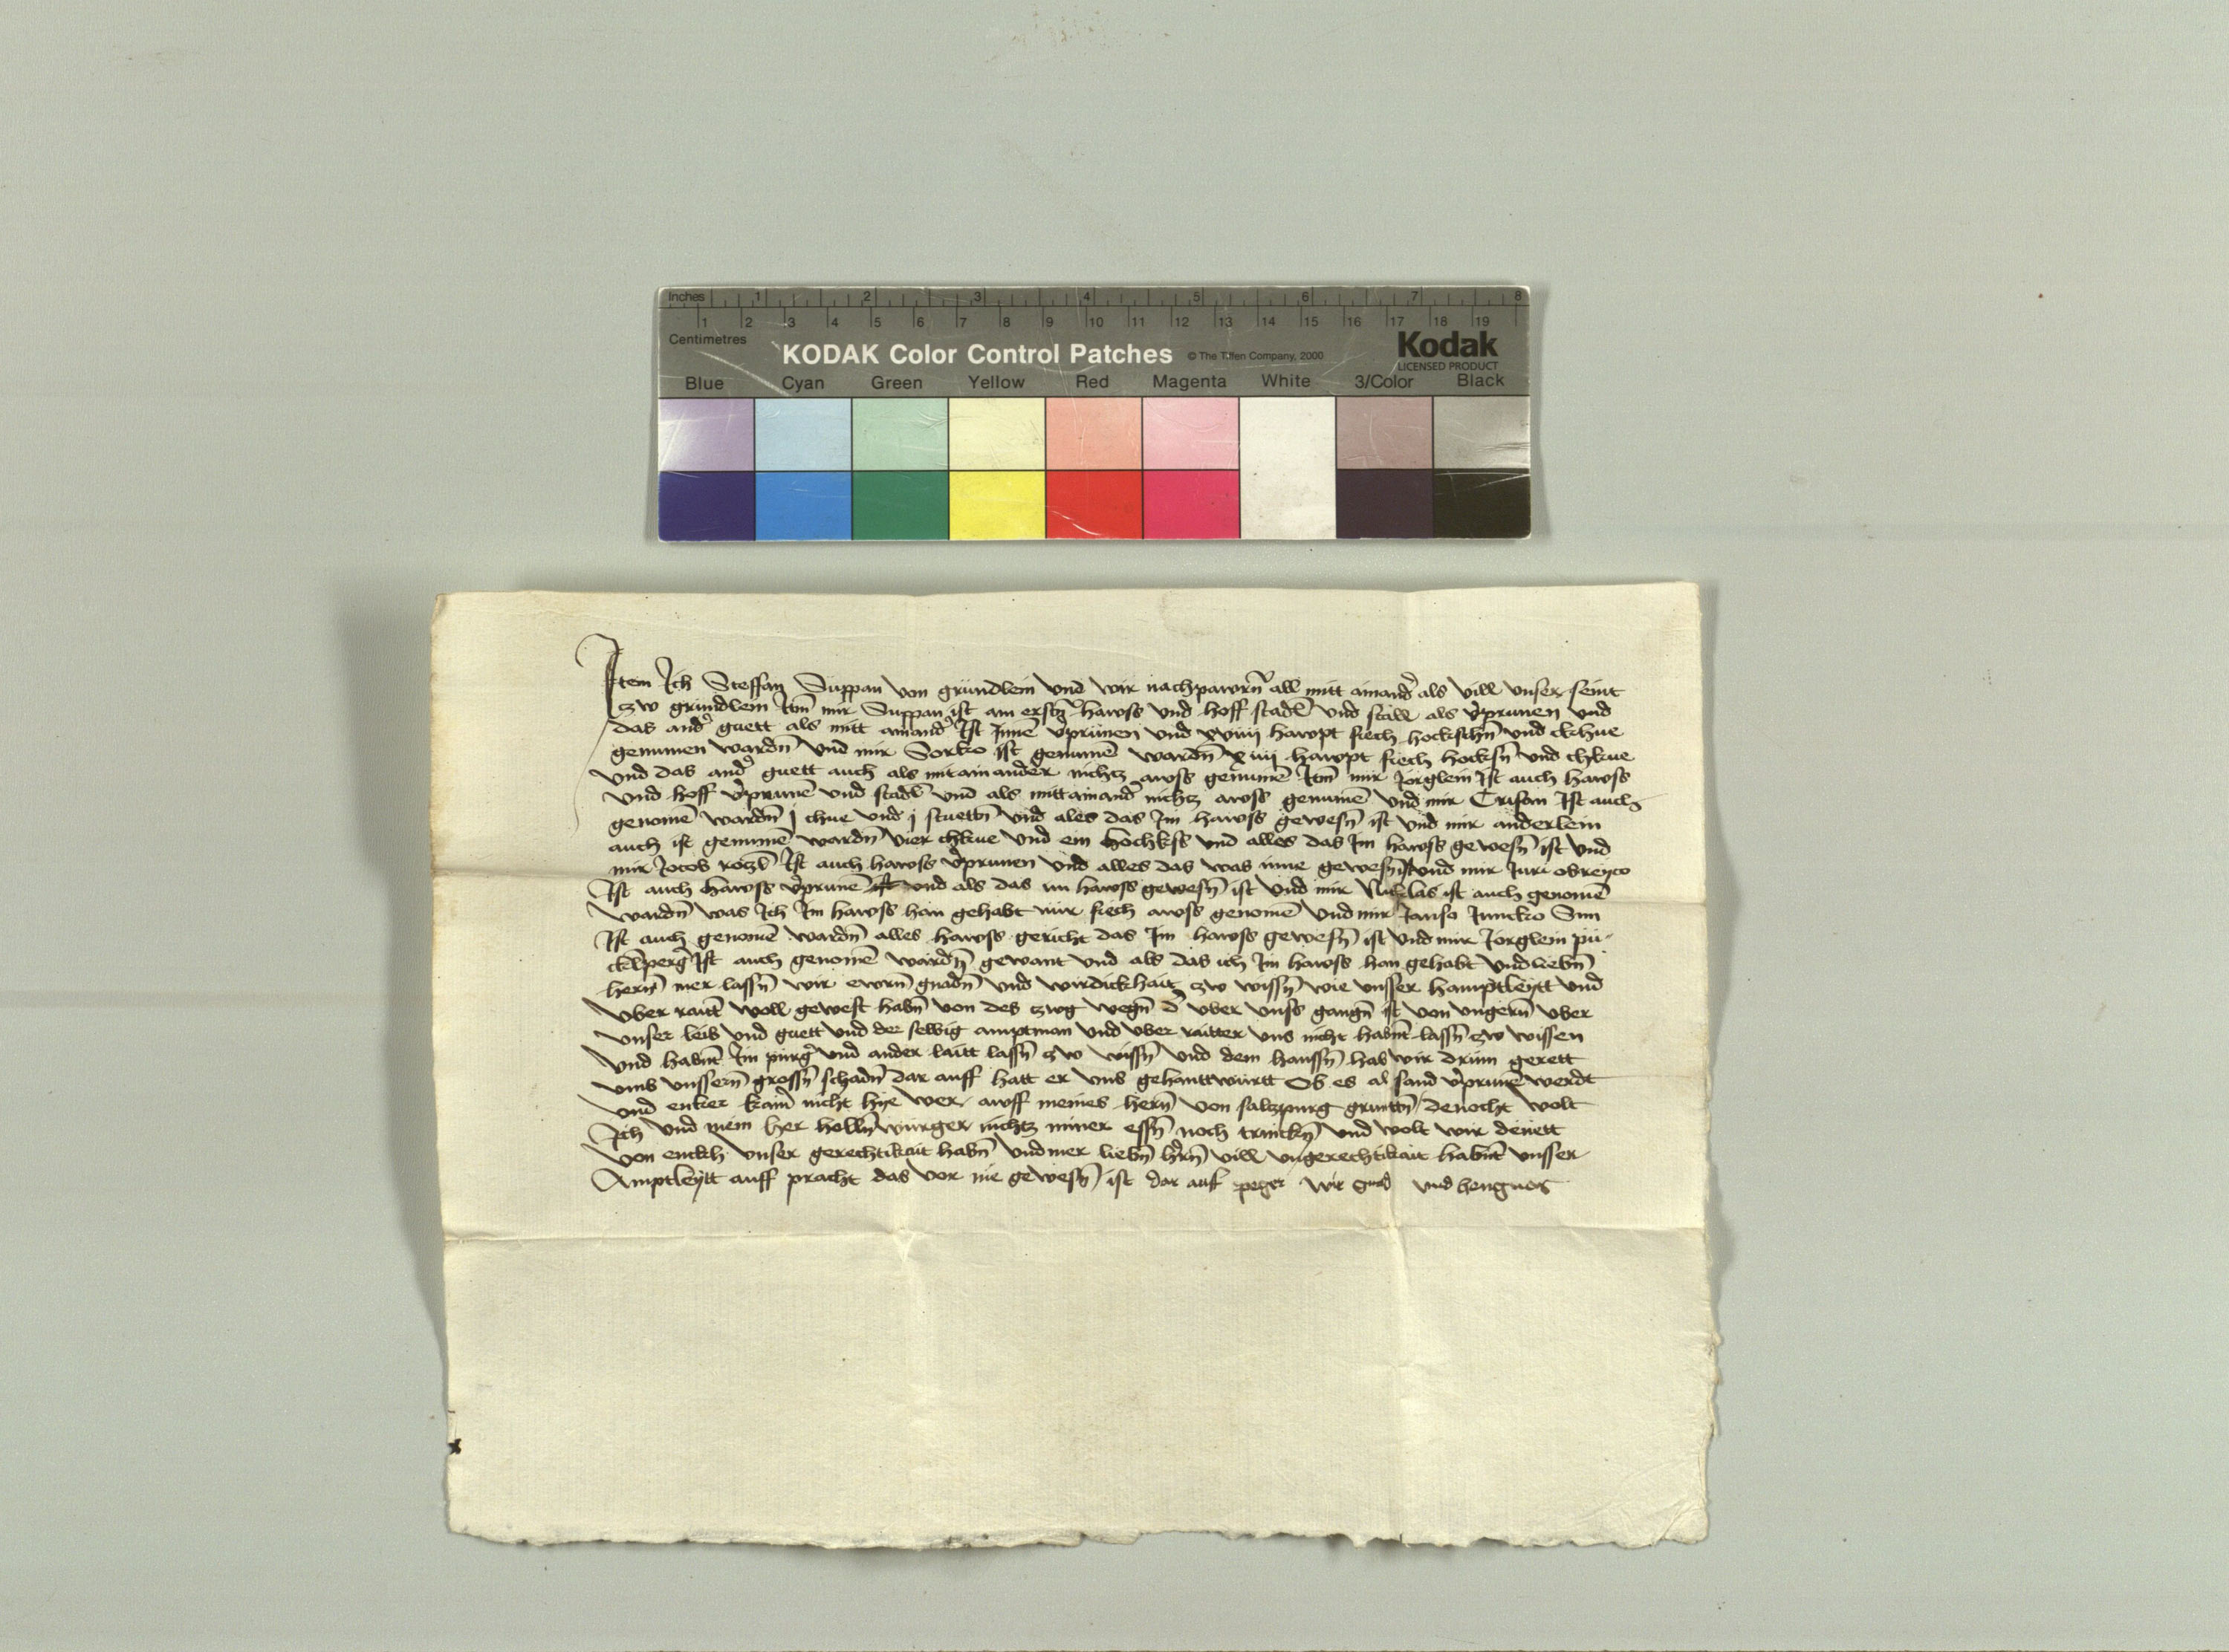 Inches 1 2 3 4 5 6 7 8
1 2 3 4 5 6 7 8 9 10 11 12 13 14 15 16 17 18 19
Centimetres
KODAK Color Control Patches © The Tiffen Company, 2000 Kodak
LICENSED PRODUCT
Blue Cyan Green Yellow Red Magenta White 3/Color Black
Item Ich Steffan Suppan von gründlein vnd wir nachpawrn̄ all mitt ainand̾ als vill vnser seint
zw gründlein Itm̄ mir Suppan ist am erstn̄ hawss vnd hoff stadl̄ vnd stall als v̾prunen vnd
das and̾ guett als mitt ainand̾ Ist Inne v̾prünen vnd xviiij hawpt fiech hockschn̄ vnd ckhue
genumen wardn̄ vnd mir Sorko ist genumē wardn̄ xiiij hawpt fiech hocksn̄ vnd chkue
vnd das and̾ guett auch als mitainander nichtz awss genumē Itm̄ mir Jorglein Ist auch hawss
vnd hoff v̾prunē vnd stadl̄ vnd als mittainand̾ nichtz awss genumē vnd mir Crisan Ist auch
genomē wardn̄ j chue vnd j stuettn̄ vnd ales das Im hawss gewesn̄ ist vnd mir anderlein
auch ist genumē wardn̄ vier chkue vnd ein hochkss vnd alles das Im hawss gewesn̄ ist vnd
mir Jocob Ist auch hawss v̾prunen vnd alles das was inne gewesn̄ ist vnd mir Juri obreyco
Ist auch hawss v̾prunē vnd als das im hawss gewesn̄ ist vnd mir Nicklas ist auch genomē
wardn̄ was Ich Im hawss han gehabt mir fiech awss genomē vnd mir Janso Juncko Sun
Ist auch genomē wardn̄ alles hawss gericht das Im hawss gewesn̄ ist vnd mir Jorglein pü
cklperg̾ Ist auch genomē wardn̄ gewant vnd als das ich Im hawss han gehabt vnd liebn̄
hern̄ mer lassn̄ wir ewrn̄ gnadn̄ vnd wirdickhait zw wissn̄ wie vnsser hamptleytt vnd
vber raitt woll gewest habn̄ von des zwg wegn̄ d̾ vber vnss gangn̄ ist von vngern̄ vber
vnser leib vnd guett vnd der selbig amptman vnd vber raitter vns nicht habnt lassn̄ zw wissen
vnd habnt Im pürg̾ vnd ander laitt lassn̄ zw wissn̄ vnd dem hanssn̄ hab wir drum gerett
vmb vnssern̄ grossn̄ schadn̄ dar auff hatt er vns gehanttwürtt Ob es al sand v̾prunē werdt
vnd enker kain̄ nicht hye wer awff meines hern̄ von saltzpurg gruntn̄ denocht wolt
Ich vnd mein her holln̄würger nichtz miner essn̄ noch trinckn̄ vnd wolt wir denett
von enckh vnser gerechtikait habn̄ vnd mer liebn̄ h̾rn̄ vill vngerechtikait habnt vnsser
Amptleytt auff pracht das vor nie gewesn̄ ist dar auf peger wir gnad vnd